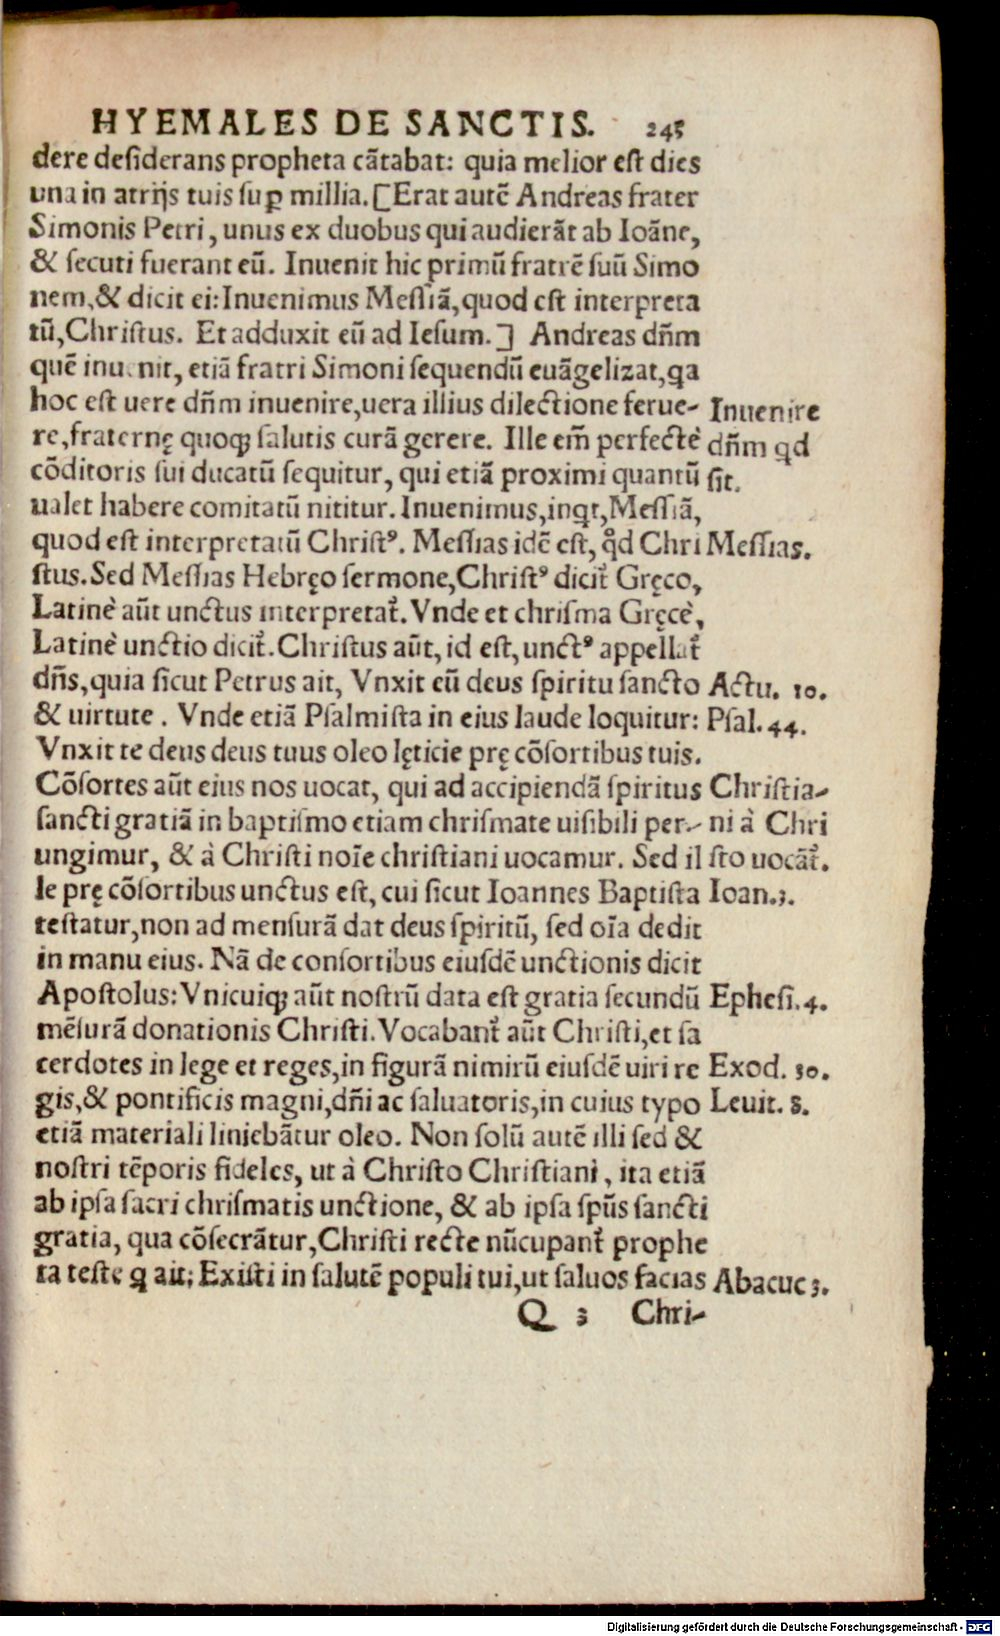 HYEMALES DE SANCTIS. 245
dere desiderans propheta cãtabat: quia melior est dies
una in atrijs tuis suꝑ millia. [Erat autẽ Andreas frater
Simonis Petri, unus ex duobus qui audierãt ab Ioãne,
& secuti fuerant eũ. Inuenit hic primũ fratrẽ suũ Simo
nem, & dicit ei: Inuenimus Messiã, quod est interpreta
tũ, Christus. Et adduxit eũ ad Iesum.] Andreas dñm
quẽ inuenit, etiã fratri Simoni sequendũ euãgelizat, qa
hoc est uere dñm inuenire, uera illius dilectione ferue-
re, fraternę quoqꝫ salutis curã gerere. Ille em̃ perfectè
cõditoris sui ducatũ sequitur, qui etiã proximi quantũ
ualet habere comitatũ nititur. Inuenimus, inqt, Messiã,
quod est interpretatũ Christꝰ. Messias idẽ est, qd̃ Chri
stus. Sed Messias Hebręo sermone, Christꝰ dicit̃ Gręco,
Latinè aũt unctus interpretat̃. Vnde et chrisma Gręcè,
Latinè unctio dicit̃. Christus aũt, id est, unctꝰ appellat̃
dñs, quia sicut Petrus ait, Vnxit eũ deus spiritu sancto
& uirtute. Vnde etiã Psalmista in eius laude loquitur:
Vnxit te deus deus tuus oleo lęticie prę cõsortibus tuis.
Cõsortes aũt eius nos uocat, qui ad accipiendã spiritus
sancti gratiã in baptismo etiam chrismate uisibili per-
ungimur, & à Christi noĩe christiani uocamur. Sed il
le prę cõsortibus unctus est, cui sicut Ioannes Baptista
testatur, non ad mensurã dat deus spiritũ, sed oĩa dedit
in manu eius. Nã de consortibus eiusdẽ unctionis dicit
Apostolus: Vnicuiqꝫ aũt nostrũ data est gratia secundũ
mẽsurã donationis Christi. Vocabant̃ aũt Christi, et sa
cerdotes in lege et reges, in figurã nimirũ eiusdẽ uiri re
gis, & pontificis magni, dñi ac saluatoris, in cuius typo
etiã materiali liniebãtur oleo. Non solũ autẽ illi sed &
nostri tẽporis fideles, ut à Christo Christiani, ita etiã
ab ipsa sacri chrismatis unctione, & ab ipsa spũs sancti
gratia, qua cõsecrãtur, Christi recte nũcupant̃ prophe
ta teste q ait: Existi in salutẽ populi tui, ut saluos facias
Q 3 Chri-
Inuenire
dñm qd
sit.
Messias.
Actu. 10.
Psal. 44.
Christia-
ni à Chri
sto uocãt̃.
Ioan. 3.
Ephesi. 4.
Exod. 30.
Leuit. 8.
Abacuc 3.
Digitalisierung gefördert durch die Deutsche Forschungsgemeinschaft - DFG